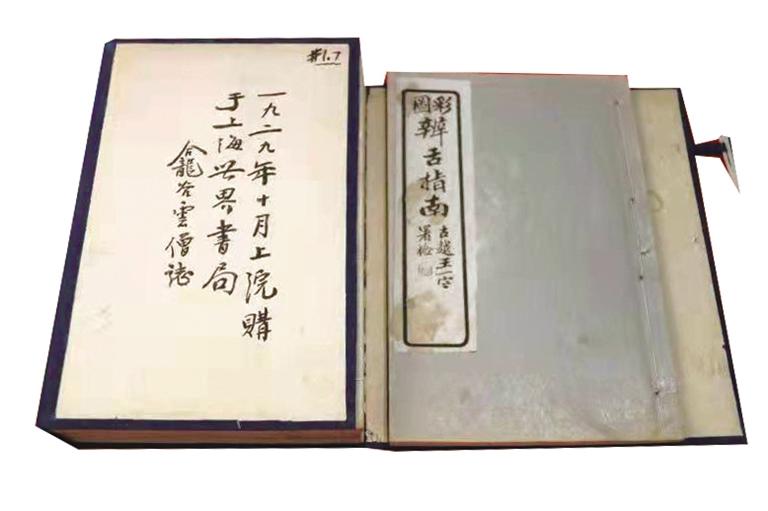 #1.7
一九二九年十月上浣購
于上海世界書局
龍雲僧誌
彩圖辨舌指南
古越王一
署檢